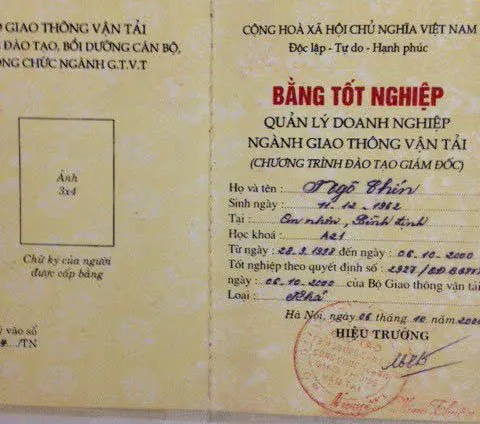 GIAO THÔNG VẬN TẢI
ĐÀO TẠO, BỒI DƯỠNG CÁN BỘ,
CHỨC NGÀNH G.T.V.T
Ảnh
3x4
Chữ ký của người
được cấp bằng
vào sổ
/TN
CỘNG HOÀ XÃ HỘI CHỦ NGHĨA VIỆT NAM
Độc lập - Tự do - Hạnh phúc
BẰNG TỐT NGHIỆP
QUẢN LÝ DOANH NGHIỆP
NGÀNH GIAO THÔNG VẬN TẢI
(CHƯƠNG TRÌNH ĐÀO TẠO GIÁM ĐỐC)
Họ và tên : Ngô Thín
Sinh ngày : 11.12.1962
Tại : Ơn nhơn, Bình Định
Học khoá : A21
Từ ngày : 28.9.1998 đến ngày : 06.10.2000
Tốt nghiệp theo quyết định số : 2927/QĐ
ngày : 06.10.2000 của Bộ Giao thông vận tải
Loại : Khá
Hà Nội, ngày 06 tháng 10 năm 2000
HIỆU TRƯỞNG